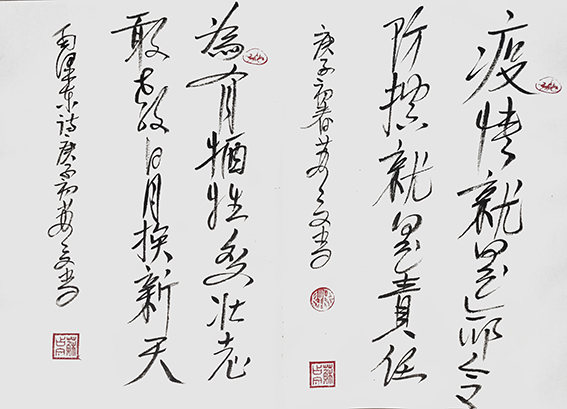 疫情就是命令
防控就是責任
庚子初春
為有牺牲多壮志
敢教日月换新天
毛泽东诗庚子初